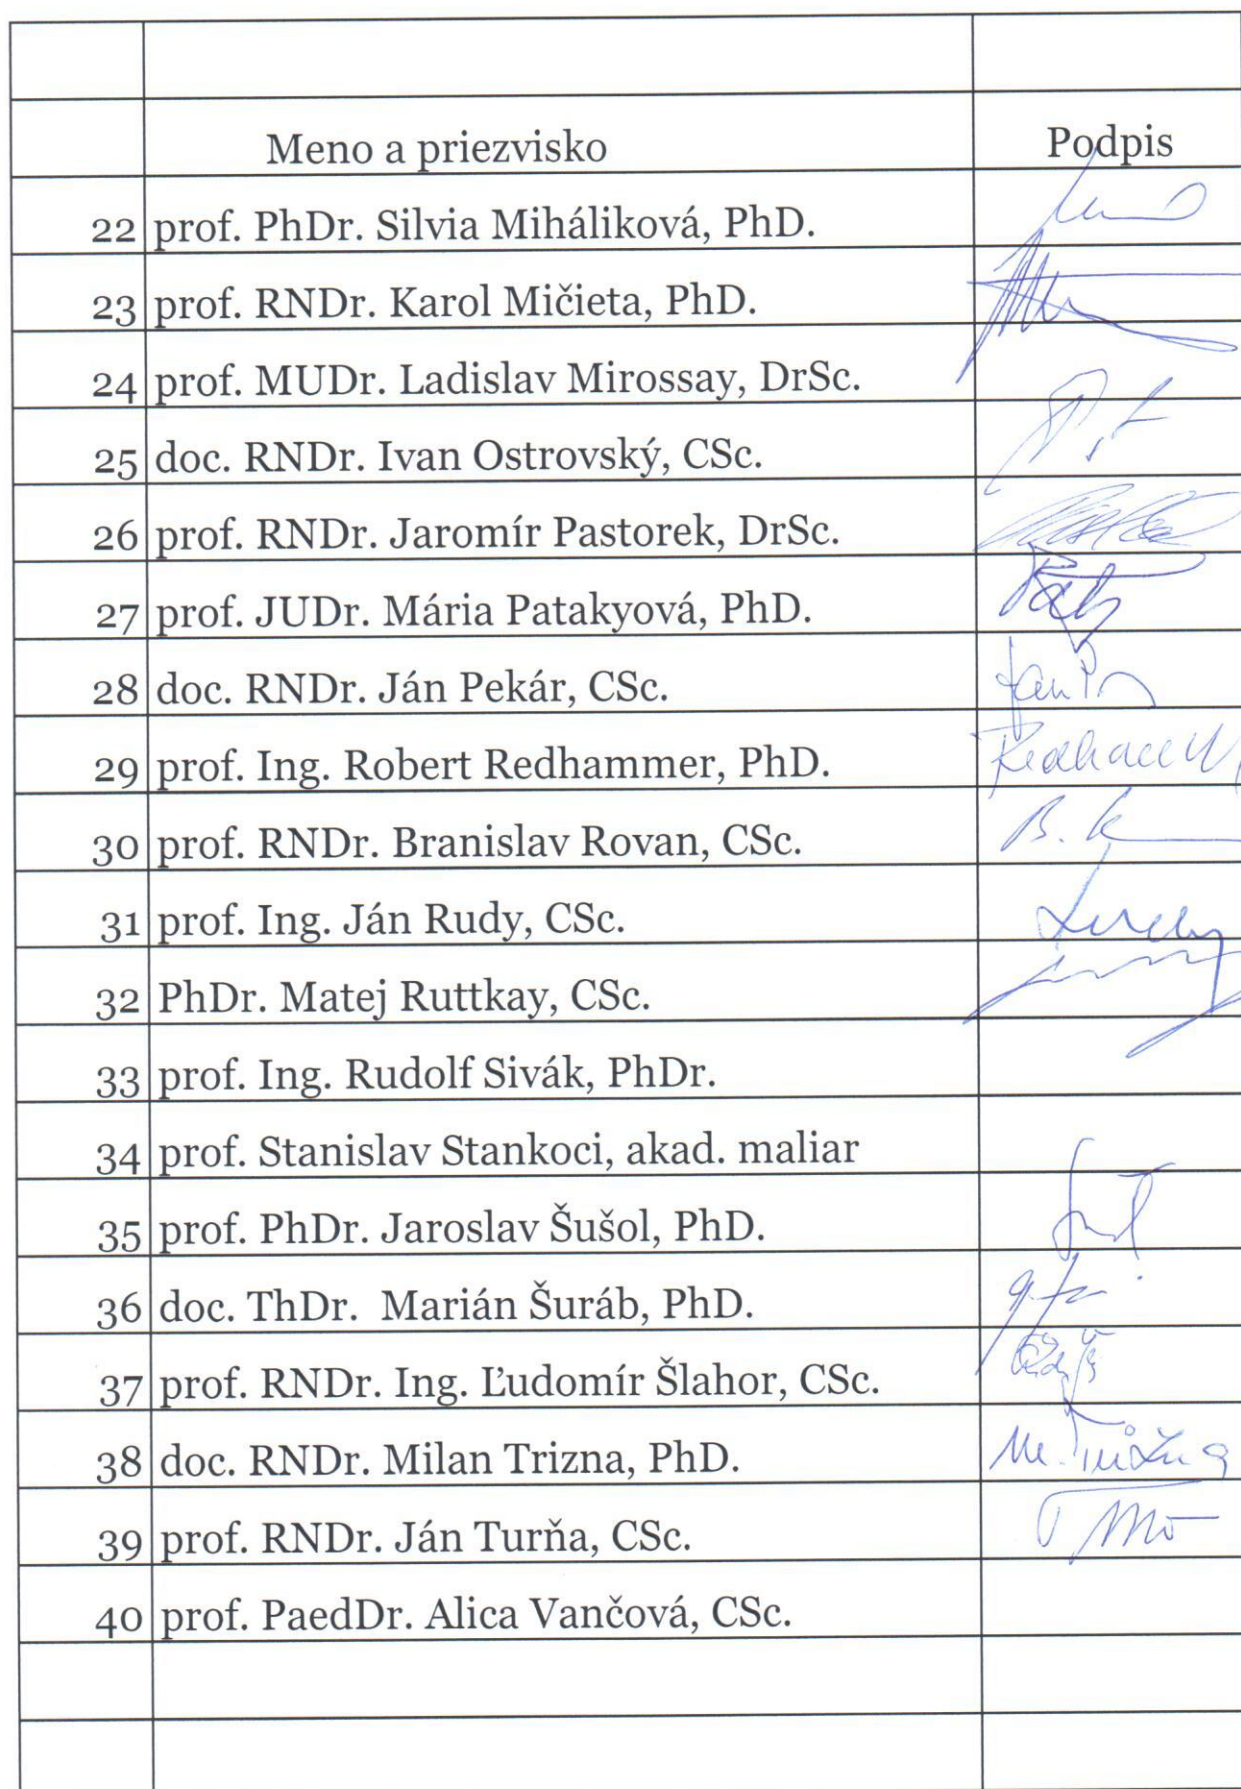 Meno a priezvisko Podpis
22 prof. PhDr. Silvia Miháliková, PhD.
23 prof. RNDr. Karol Mičieta, PhD.
24 prof. MUDr. Ladislav Mirossay, DrSc.
25 doc. RNDr. Ivan Ostrovský, CSc.
26 prof. RNDr. Jaromír Pastorek, DrSc.
27 prof. JUDr. Mária Patakyová, PhD.
28 doc. RNDr. Ján Pekár, CSc.
29 prof. Ing. Robert Redhammer, PhD.
30 prof. RNDr. Branislav Rovan, CSc.
31 prof. Ing. Ján Rudy, CSc.
32 PhDr. Matej Ruttkay, CSc.
33 prof. Ing. Rudolf Sivák, PhDr.
34 prof. Stanislav Stankoci, akad. maliar
35 prof. PhDr. Jaroslav Šušol, PhD.
36 doc. ThDr. Marián Šuráb, PhD.
37 prof. RNDr. Ing. Ľudomír Šlahor, CSc.
38 doc. RNDr. Milan Trizna, PhD.
39 prof. RNDr. Ján Turňa, CSc.
40 prof. PaedDr. Alica Vančová, CSc.